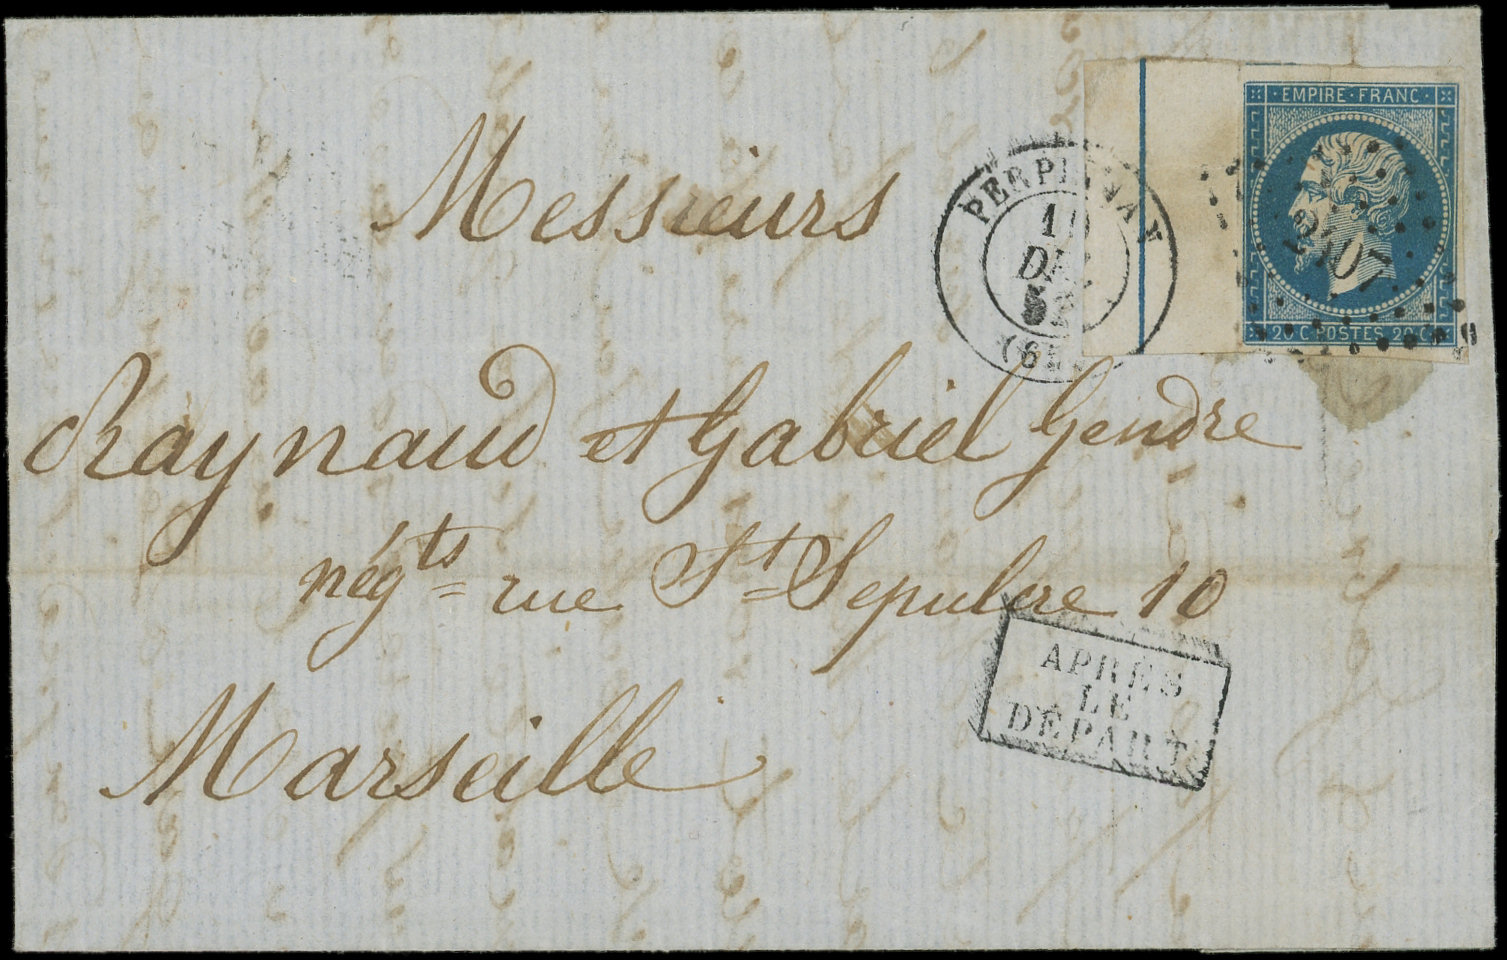 EMPIRE · FRANC ·
20 C POSTES 20 C
2407
PERPIGNAN
DEC
APRÈS
LE
DÉPART
Messieurs
Raynaud et Gabriel Gendre
négts rue St Sepulcre 10
Marseille